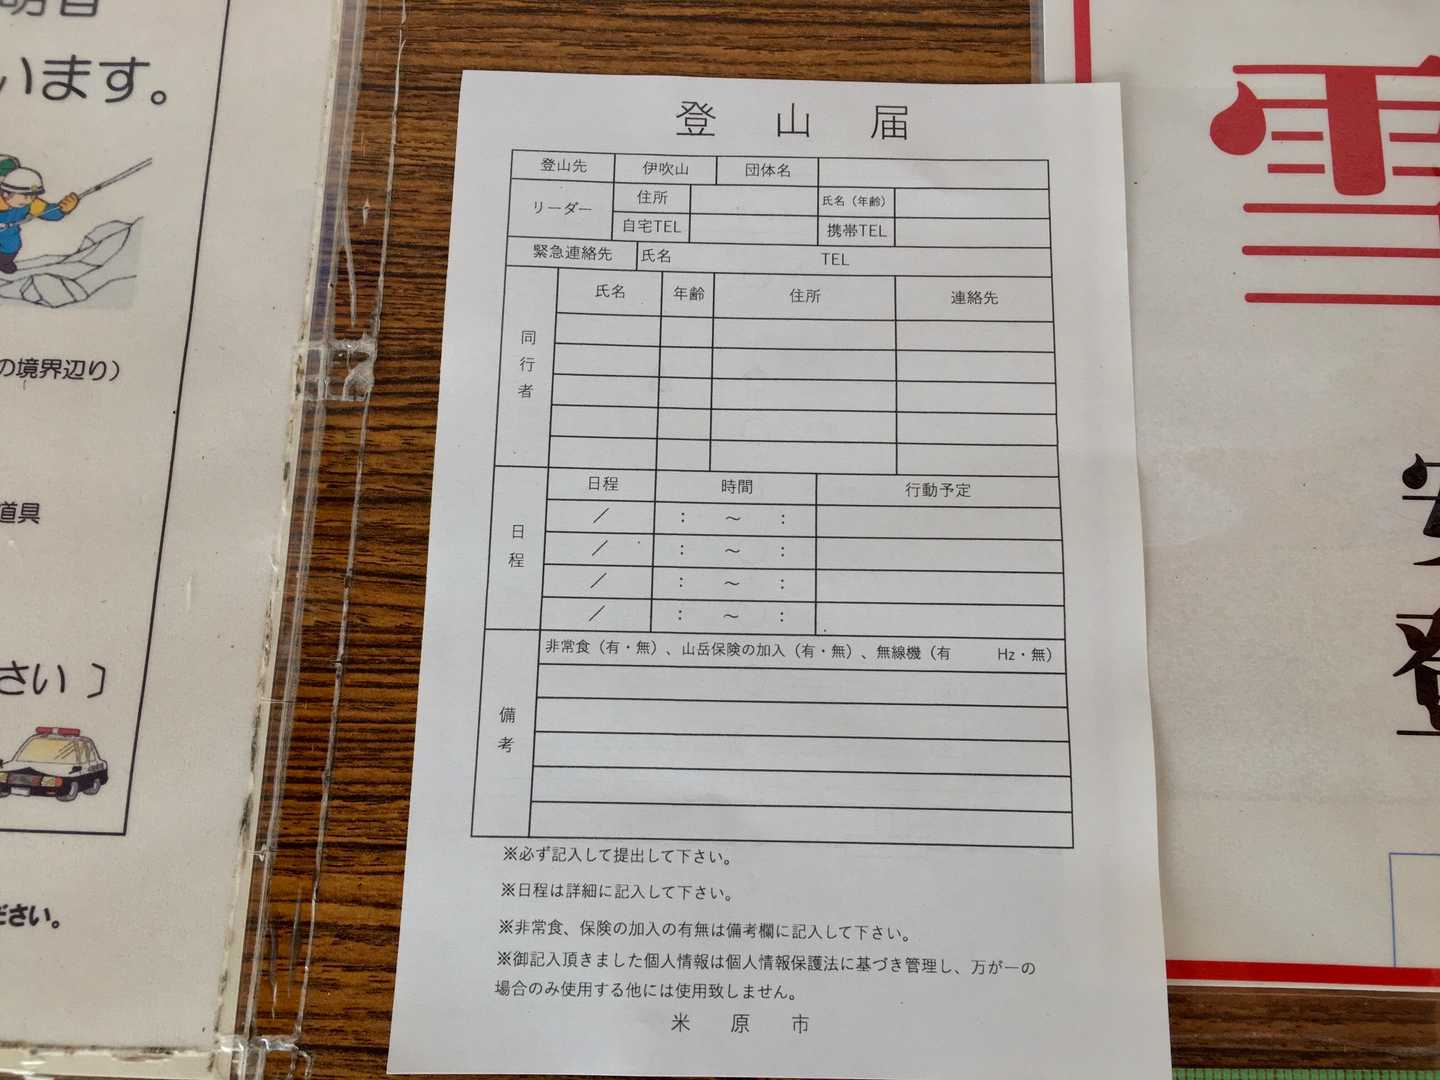 います。
の境界辺り）
道具
さい 〕
ださい。
登 山 届
登山先 伊吹山 団体名
リーダー 住所 氏名（年齢）
自宅TEL 携帯TEL
緊急連絡先 氏名 TEL
同行者 氏名 年齢 住所 連絡先
日程 日程 時間 行動予定
／ ： ～ ：
／ ： ～ ：
／ ： ～ ：
／ ： ～ ：
備考 非常食（有・無）、山岳保険の加入（有・無）、無線機（有 Hz・無）
※必ず記入して提出して下さい。
※日程は詳細に記入して下さい。
※非常食、保険の加入の有無は備考欄に記入して下さい。
※御記入頂きました個人情報は個人情報保護法に基づき管理し、万が一の
場合のみ使用する他には使用致しません。
米 原 市